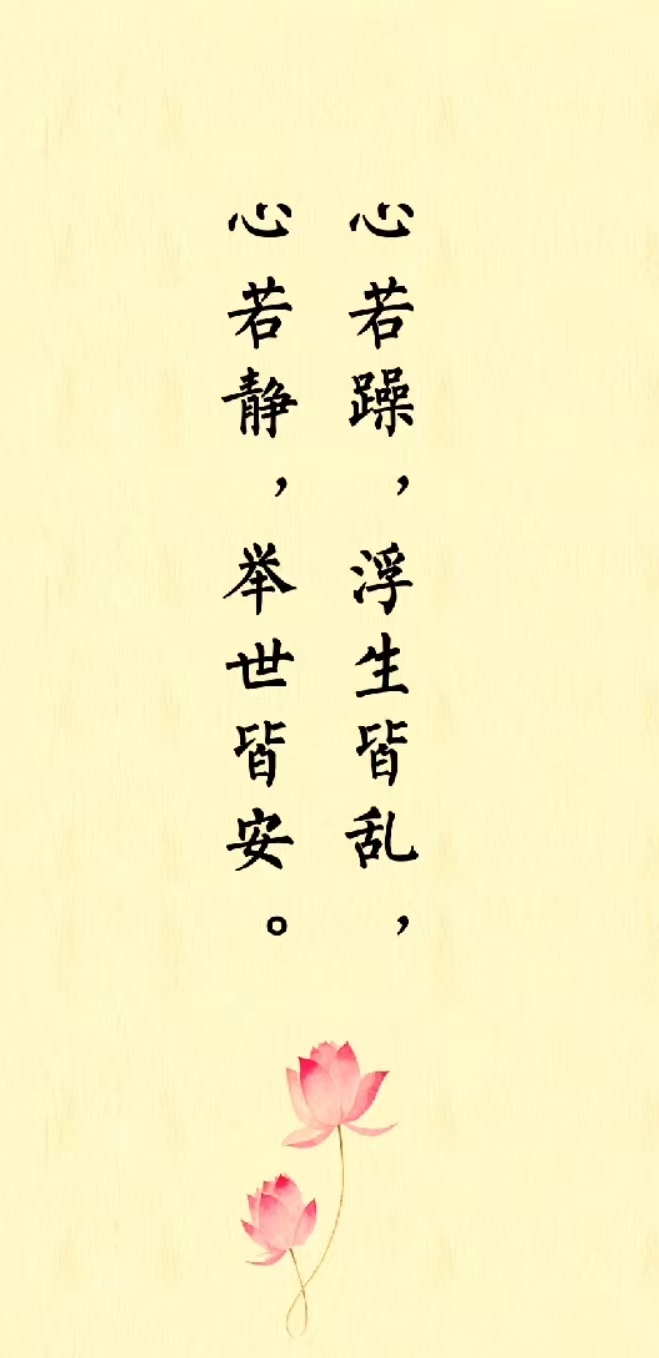 心若躁，浮生皆乱，
心若静，举世皆安。